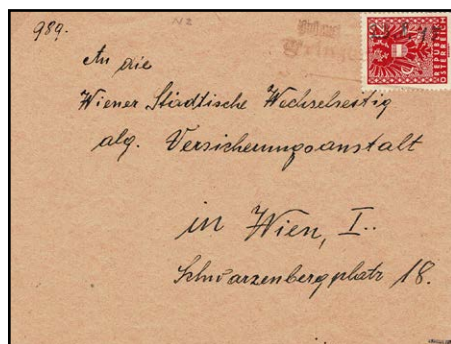 989.
N2
An die
Wiener Städtische Wechselseitig
alg. Versicherungsanstalt
in Wien, I..
Schwarzenbergplatz 18.
REPUBLIK
ÖSTERREICH